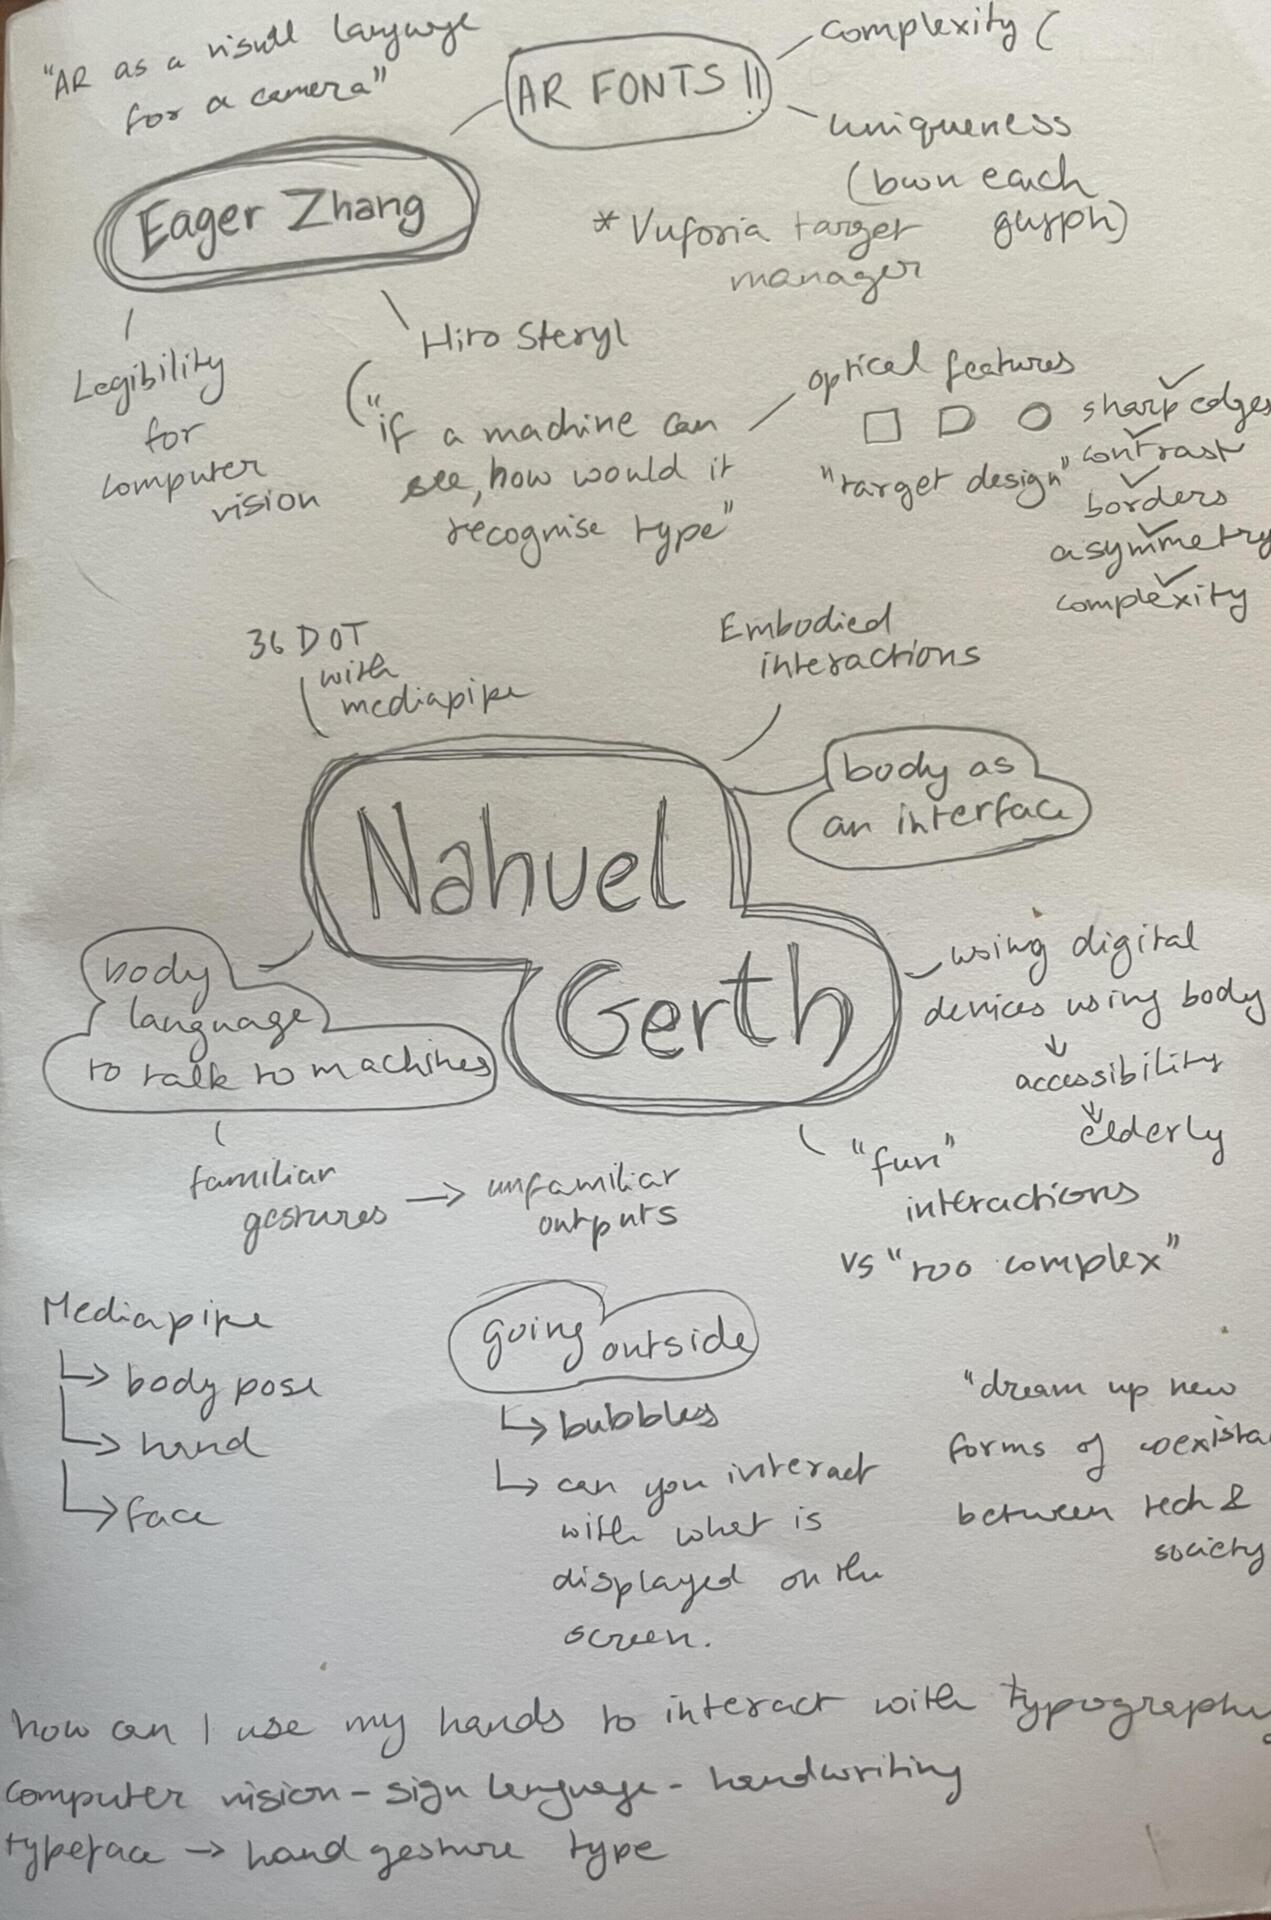 "AR as a visual language
for a camera"
AR FONTS !!
complexity (
uniqueness
(own each
glyph)
* Vuforia target
manager
Eager Zhang
Legibility
for
computer
vision
Hito Steryl
("if a machine can
see, how would it
recognise type"
optical features
sharp edges
"target design"
contrast
borders
asymmetry
complexity
36 DOT
with
mediapipe
Embodied
interactions
body as
an interface
Nahuel
Gerth
body
language
to talk to machines
using digital
devices using body
accessibility
elderly
familiar
gestures → unfamiliar
outputs
"fun"
interactions
vs "too complex"
Mediapipe
↳ body pose
↳ hand
↳ face
going outside
↳ bubbles
↳ can you interact
with what is
displayed on the
screen.
"dream up new
forms of coexista
between tech &
society
how can I use my hands to interact with typography
computer vision – sign language – handwriting
typeface → hand gesture type